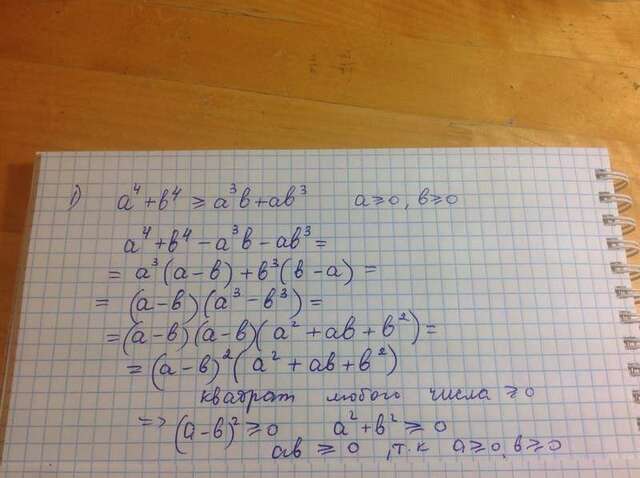 1) a⁴+b⁴ ≥ a³b+ab³ a≥0, b≥0
a⁴+b⁴-a³b-ab³=
= a³(a-b)+b³(b-a)=
= (a-b)(a³-b³)=
=(a-b)(a-b)(a²+ab+b²)=
=(a-b)²(a²+ab+b²)
квадрат любого числа ≥0
=> (a-b)²≥0 a²+b²≥0
ab ≥ 0, т.к a≥0, b≥0